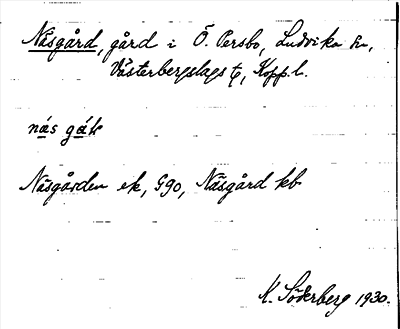 Näsgård, gård i Ö. Persbo, Ludvika sn,
Västerbergslags tg, Kopp. l.
nás gák
Näsgården ek, G90, Näsgård kb
K. Söderberg 1930.